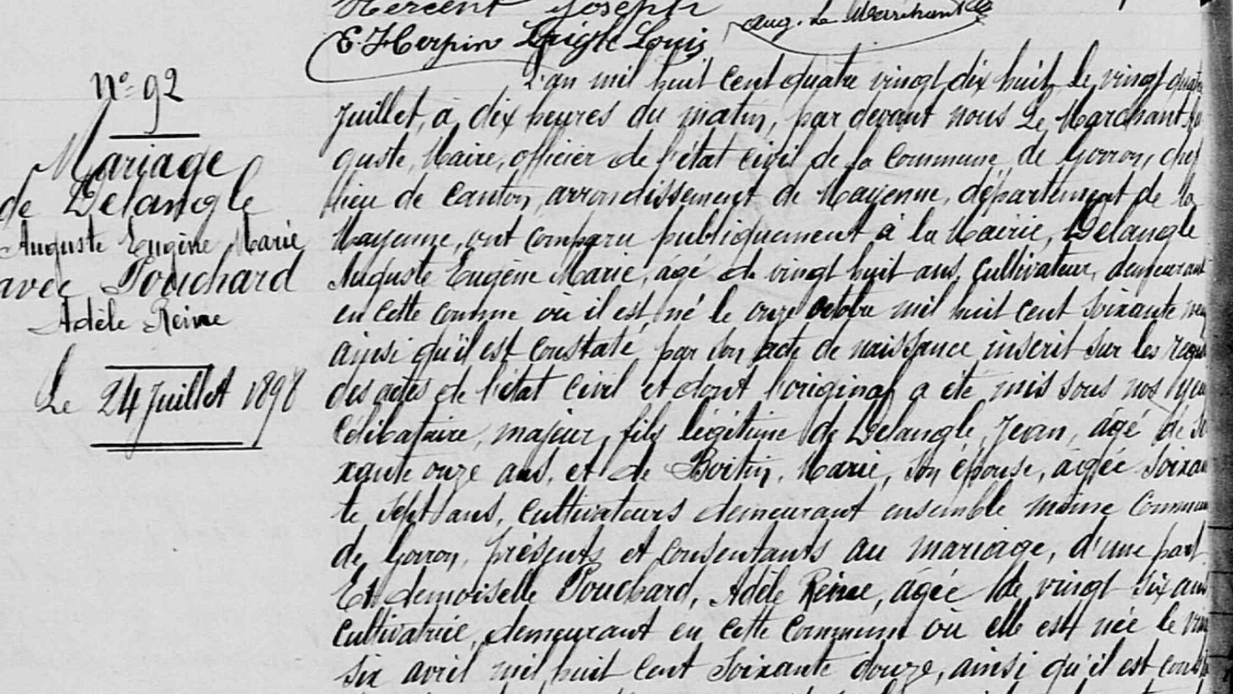 Hercent Joseph
E. Herpin Loigte Louis Aug. Le Marchant
n° 92
Mariage
de Delangle
Auguste Eugène Marie
avec Pouchard
Adèle Reine
Le 24 Juillet 1898
L'an mil huit cent quatre vingt dix huit, le vingt quatre
juillet, à dix heures du matin, par devant nous Le Marchant,
guste, Maire, officier de l'état civil de la Commune de Gorron, chef
lieu de canton, arrondissement de Mayenne, département de la
Mayenne, ont comparu publiquement à la Mairie, Delangle
Auguste Eugène Marie, âgé de vingt huit ans, Cultivateur, demeurant
en cette commune où il est né le onze octobre mil huit cent soixante neuf
ainsi qu'il est constaté par son acte de naissance inscrit sur les
des actes de l'état civil et dont l'original a été mis sous nos yeux
Célibataire, majeur, fils légitime de Delangle, Jean, âgé de soi
xante onze ans, et de Boitin, Marie, son épouse, âgée soixan
te sept ans, cultivateurs demeurant ensemble même Commune
de Gorron, présents et consentants au mariage, d'une part
Et demoiselle Pouchard, Adèle Reine, âgée de vingt six ans
cultivatrice, demeurant en cette Commune où elle est née le vingt
six avril mil huit cent soixante douze, ainsi qu'il est